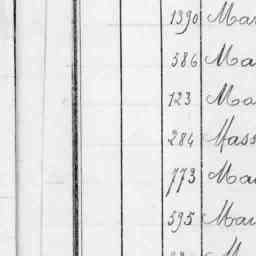 1390 Mar
586 Ma
123 Ma
284 Mass
773 Mau
595 Mau